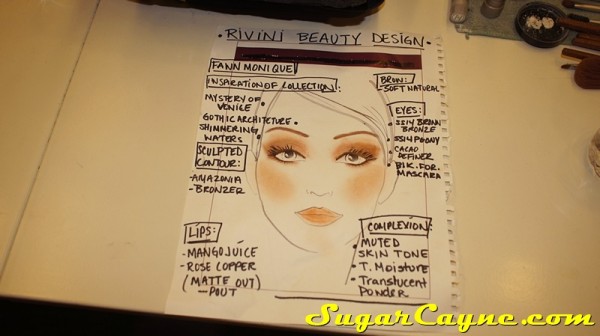 • RIVINI BEAUTY DESIGN •
FANN MONIQUE
INSPIRATION OF COLLECTION:
MYSTERY OF
VENICE
GOTHIC ARCHITECTURE
SHIMMERING
WATERS
SCULPTED
CONTOUR:
- AMAZONIA
- BRONZER
LIPS:
- MANGO JUICE
- ROSE COPPER
(MATTE OUT)
- POUT
BROW:
- SOFT NATURAL
EYES:
SS14 BROWN
BRONZE
SS14 PEONY
CACAO
DEFINER
BLK. FOR.
MASCARA
COMPLEXION:
• MUTED
SKIN TONE
• T. MOISTURE
• Translucent
POWDER
SugarCayne.com